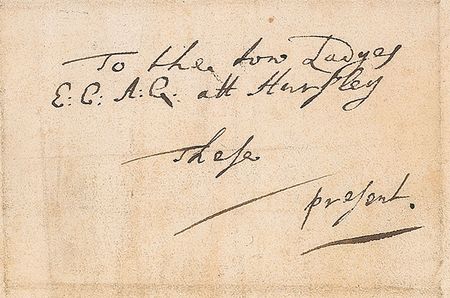 To the tow Ladyes
E: C: A: C: att Hursley
These
present.